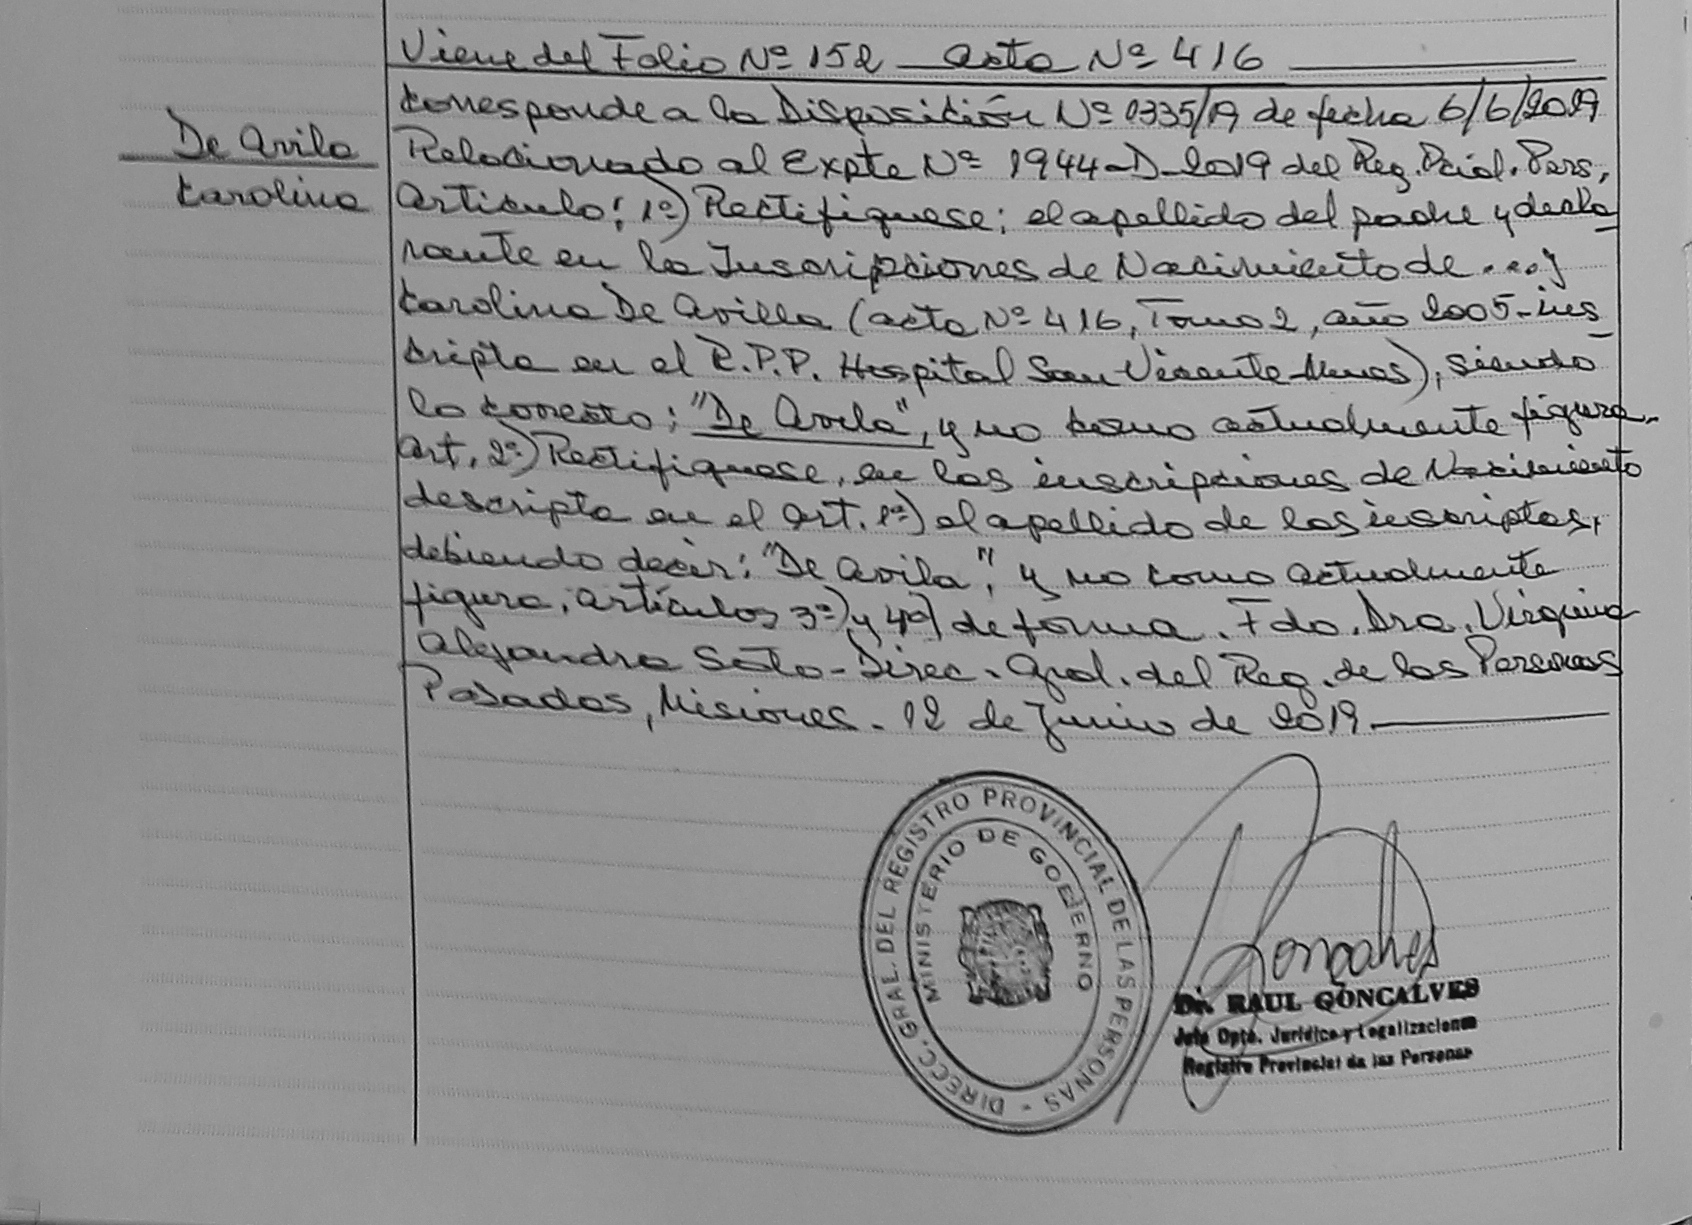 Viene del Folio Nº 152 — acta Nº 416
De Avila
Karolina
Corresponde a la Disposición Nº 0335/19 de fecha 6/6/2019
Relacionado al Expte Nº 1944-D-2019 del Reg. Pcial. Pers,
Artículo: 1º) Rectifiquese; el apellido del padre y decla
rante en la Inscripciones de Nacimiento de ...;
Karolina De Avilla (acta Nº 416, Tomo 2, año 2005-ins
cripta en el R.P.P. Hospital San Vicente-Mnes), siendo
lo correcto: "De Avila", y no como actualmente figura.
Art. 2º) Rectifiquese, en las inscripciones de Nacimiento
descripta en el Art. 1º) el apellido de los inscriptos,
debiendo decir: "De Avila", y no como actualmente
figura, artículos 3º) y 4º) de forma. Fdo. Dra. Virginia
Alejandra Soto-Direc. Gral. del Reg. de las Personas
Posadas, Misiones. 12 de Junio de 2019.
DIRECC. GRAL. DEL REGISTRO PROVINCIAL DE LAS PERSONAS -
MINISTERIO DE GOBIERNO
Goncalves
Dr. RAUL GONCALVES
Jefe Dpto. Jurídico y Legalizaciones
Registro Provincial de las Personas